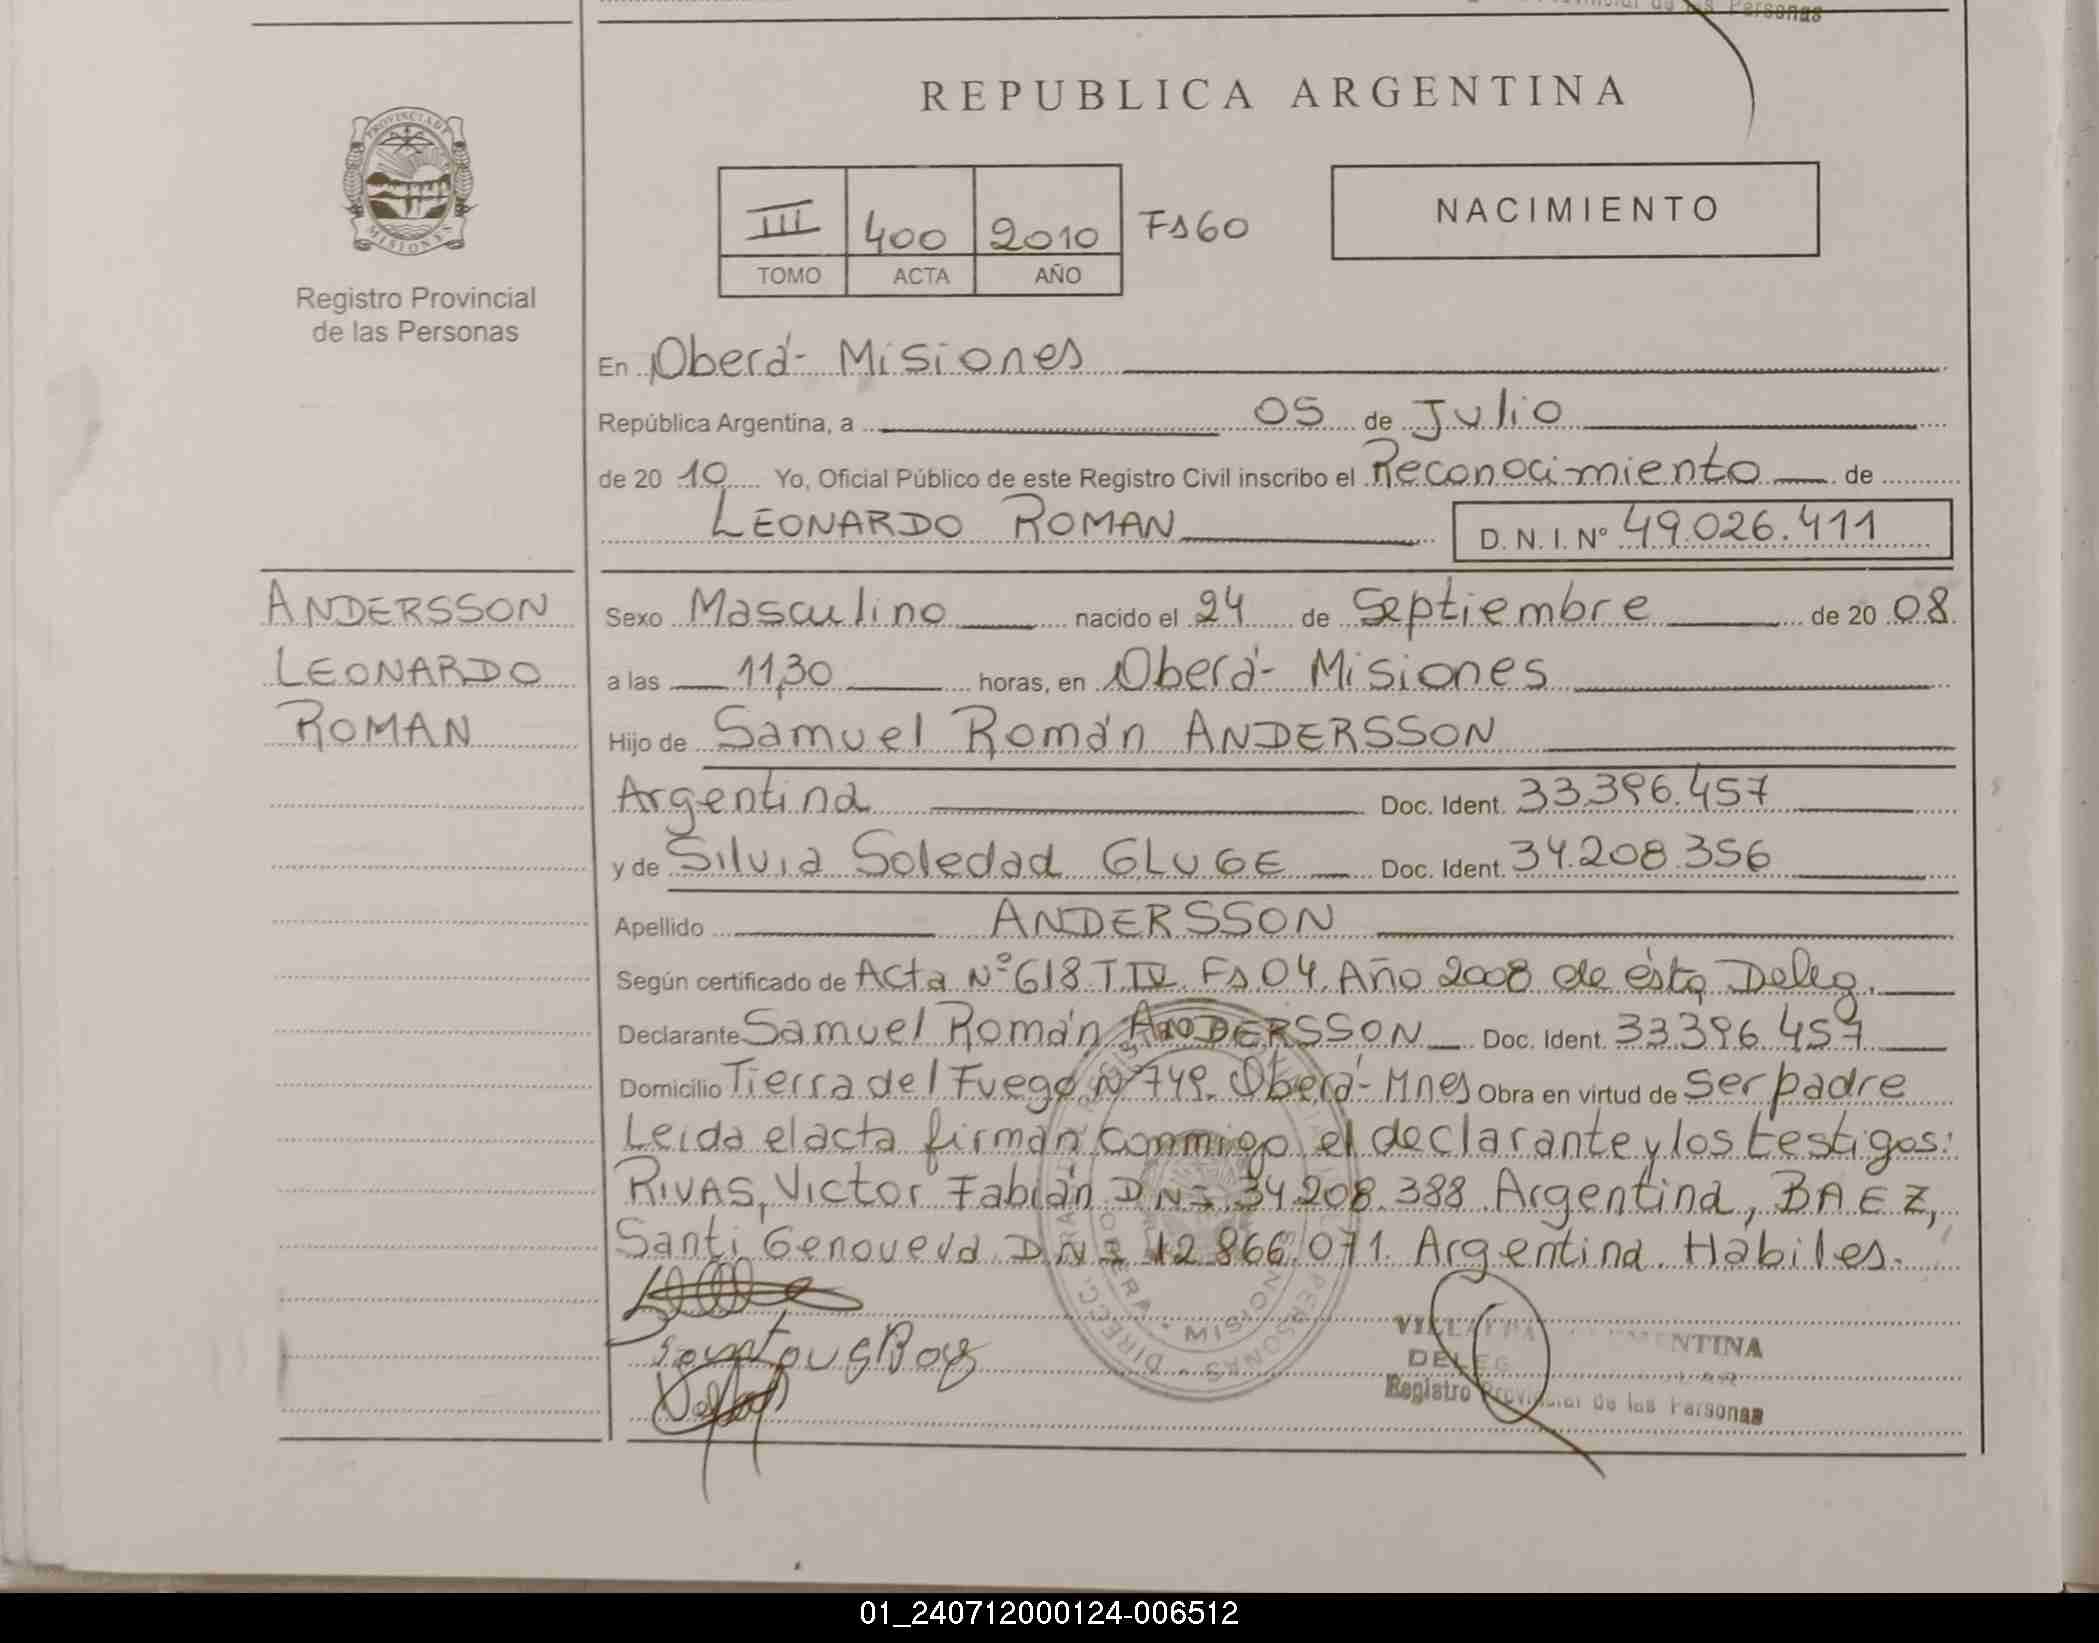 de las Personas
REPUBLICA ARGENTINA
PROVINCIA DE
MISIONES
Registro Provincial
de las Personas
III 400 2010 Fs 60
TOMO ACTA AÑO
NACIMIENTO
En Oberá - Misiones
República Argentina, a 05 de Julio
de 20 10 Yo, Oficial Público de este Registro Civil inscribo el Reconocimiento de
LEONARDO ROMAN D.N.I. Nº 49.026.411
ANDERSSON
LEONARDO
ROMAN
Sexo Masculino nacido el 24 de Septiembre de 20 08.
a las 11,30 horas, en Oberá - Misiones
Hijo de Samuel Román ANDERSSON
Argentina Doc. Ident. 33.396.457
y de Silvia Soledad GLUGE Doc. Ident. 34.208.356
Apellido ANDERSSON
Según certificado de Acta Nº 618 T. IV. Fs 04. Año 2008 de ésta Deleg.
Declarante Samuel Román ANDERSSON Doc. Ident. 33.396.457
Domicilio Tierra del Fuego Nº 749. Oberá - Mnes Obra en virtud de ser padre
Leida el acta firman conmigo el declarante y los testigos:
RIVAS, Victor Fabián DNI 34.208.388 Argentina, BAEZ,
Santi Genoveva DNI 12.866.071. Argentina. Hábiles.
OBERA - MISIONES
DELEG
Registro Provincial de las Personas
01_240712000124-006512